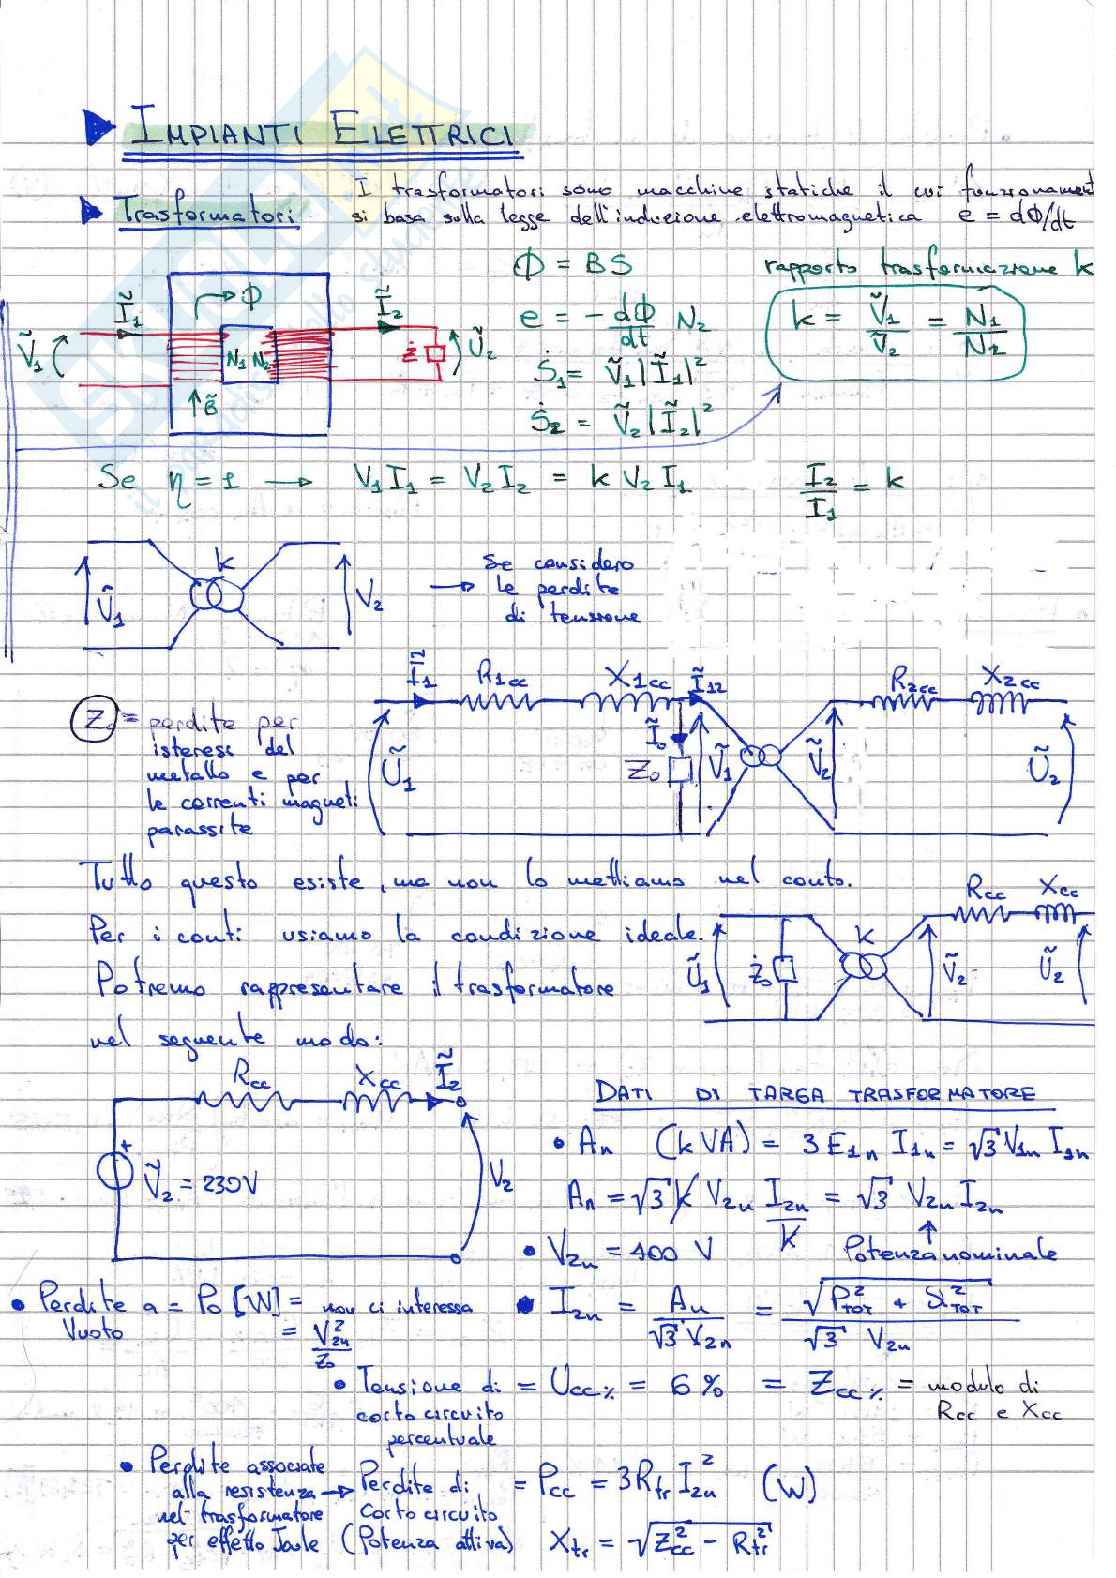 IMPIANTI ELETTRICI
Trasformatori
I trasformatori sono macchine statiche il cui funzionament
si basa sulla legge dell'induzione elettromagnetica e = dΦ/dt
Φ = BS
rapporto trasformazione k
Ĩ₁
Φ
Ĩ₂
Ṽ₁
N₁ N₂
Ż
Ũ₂
B̃
e = - dΦ/dt N₂
k = Ṽ₁/Ṽ₂ = N₁/N₂
Ṡ₁ = Ṽ₁|Ĩ₁|²
Ṡ₂ = Ṽ₂|Ĩ₂|²
Se η = 1 → V₁I₁ = V₂I₂ = k V₂ I₁
I₂/I₁ = k
Ũ₁
k
V₂
→ Se considero
le perdite
di tensione
Ĩ₁
R₁cc
X₁cc
Ĩ₁₂
R₂cc
X₂cc
Z₀ = perdite per
isteresi del
metallo e per
le correnti magneti
parassite
Ũ₁
Ĩ₀
Z₀
Ṽ₁
Ṽ₂
Ũ₂
Tutto questo esiste, ma non lo mettiamo nel conto.
Per i conti usiamo la condizione ideale.
Potremo rappresentare il trasformatore
nel seguente modo:
Rcc
Xcc
Ũ₁
Ż₀
k
Ṽ₂
Ũ₂
Rcc
Xcc
Ĩ₂
+
Ṽ₂ = 230V
V₂
DATI DI TARGA TRASFORMATORE
• An (kVA) = 3 E₁n I₁n = √3 V₁n I₁n
An = √3 k V₂n I₂n/k = √3 V₂n I₂n
• V₂n = 400 V
Potenza nominale
• Perdite a Vuoto = P₀ [W] = non ci interessa
= V²₂n/Z₀
• I₂n = An/√3 V₂n = √P²TOT + Q²TOT / √3 V₂n
• Tensione di
corto circuito
percentuale
= Ucc% = 6% = Zcc% = modulo di
Rcc e Xcc
• Perdite associate
alla resistenza →
nel trasformatore
per effetto Joule
Perdite di
corto circuito
(Potenza attiva)
= Pcc = 3 Rtr I²₂n (W)
Xtr = √Z²cc - R²tr